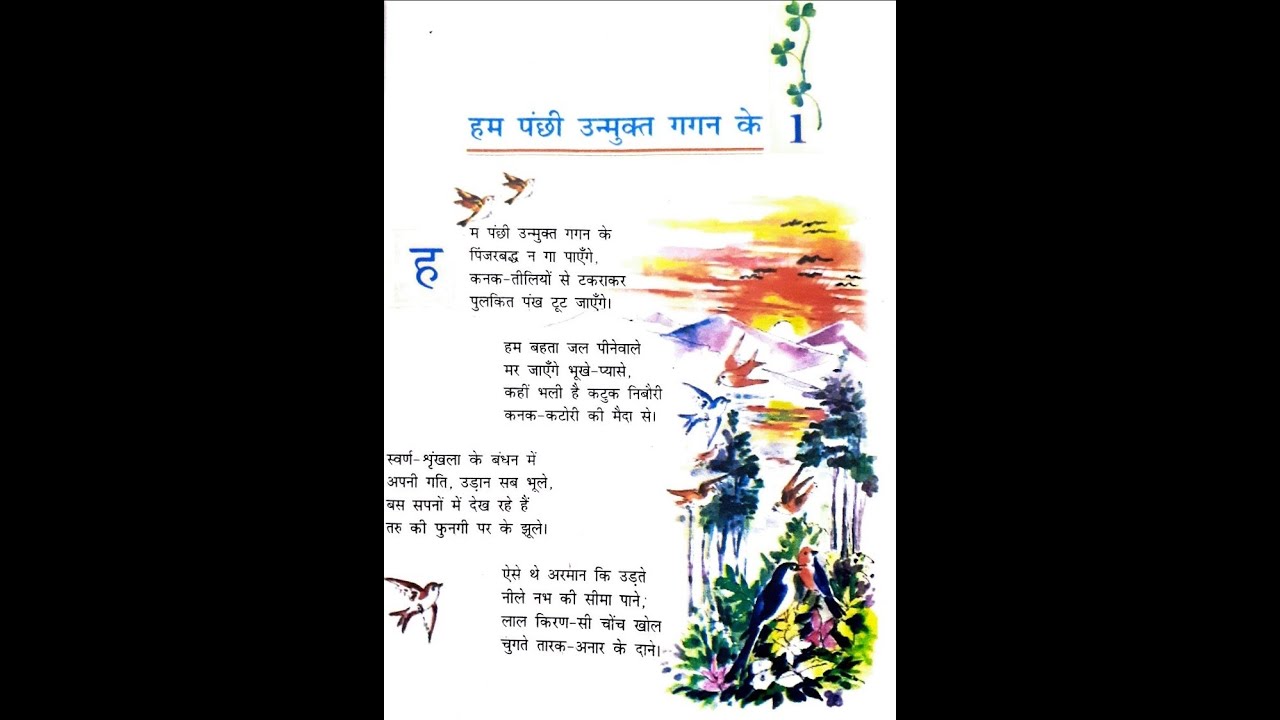 हम पंछी उन्मुक्त गगन के
1
हम पंछी उन्मुक्त गगन के
पिंजरबद्ध न गा पाएँगे,
कनक-तीलियों से टकराकर
पुलकित पंख टूट जाएँगे।
हम बहता जल पीनेवाले
मर जाएँगे भूखे-प्यासे,
कहीं भली है कटुक निबौरी
कनक-कटोरी की मैदा से।
स्वर्ण-शृंखला के बंधन में
अपनी गति, उड़ान सब भूले,
बस सपनों में देख रहे हैं
तरु की फुनगी पर के झूले।
ऐसे थे अरमान कि उड़ते
नीले नभ की सीमा पाने,
लाल किरण-सी चोंच खोल
चुगते तारक-अनार के दाने।